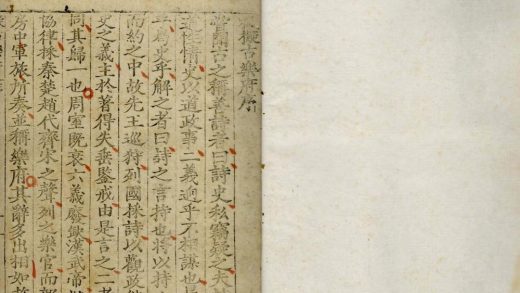 擬古樂府序
嘗聞古之稱善詩者曰詩史私竊疑之夫
性情史以道政事二義迥乎不相謀也
爲史乎解之者曰詩之言持也將以持
而約之中故先王巡狩列國採詩以觀政
史之義主於著得失垂鑒戒由是言之二者
同其歸一也周室既衰六義廢缺漢武帝
協律採秦楚趙代齊宋之聲列之樂官而
房中軍旅所奏並稱樂府其辭多出相如